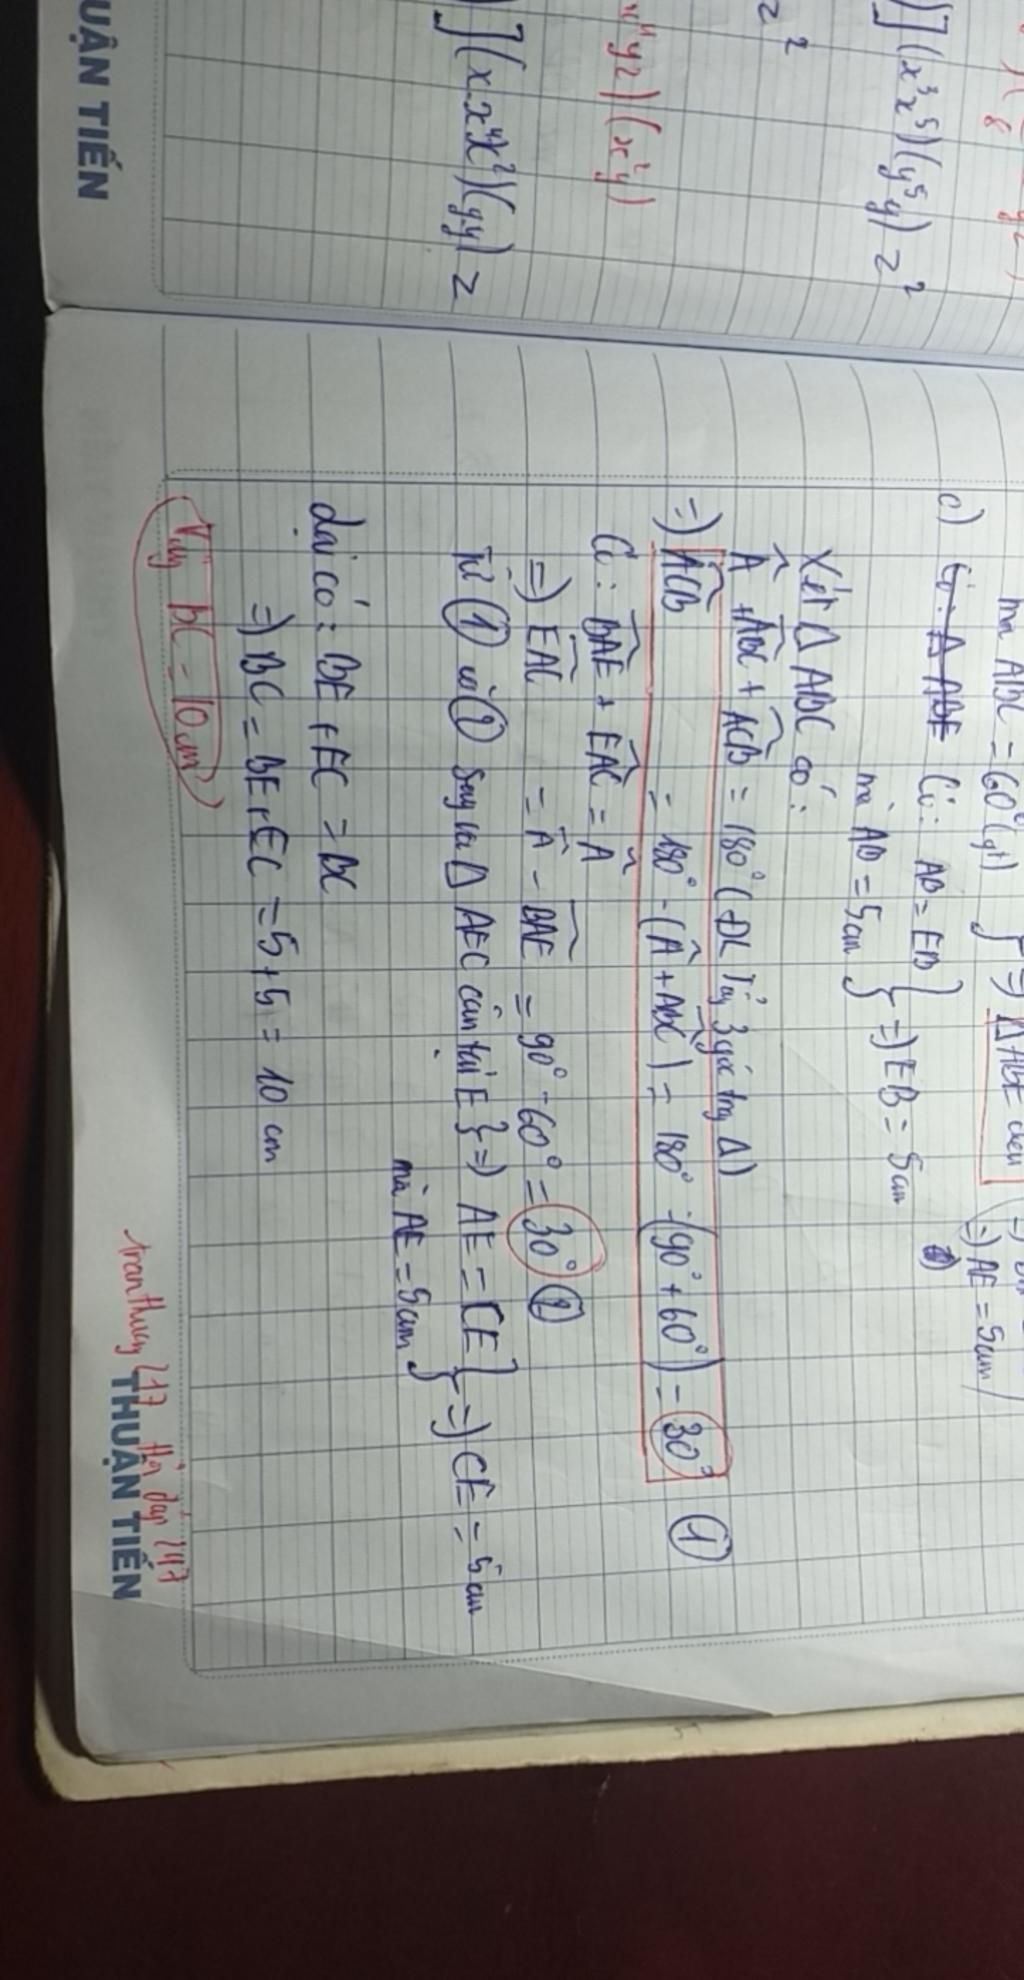 ](x³x⁵)(y⁵y) z²
z²
x⁴yz)(x²y)
](x.x⁴x²)(y.y) z
UẬN TIẾN
mà ABC = 60° (gt) } => ΔABE đều
=> AE = 5cm
c) Có: Δ ABE Có: AB = EB } => EB = 5cm
mà AB = 5cm
Xét Δ ABC có:
Â + ABC + ACB = 180° (ĐL Tổng 3 góc trong Δ)
=> ACB = 180° - (Â + ABC) = 180° - (90° + 60°) = 30° (1)
Có: BAE + EAC = Â
=> EAC = Â - BAE = 90° - 60° = 30° (2)
Từ (1) và (2) suy ra Δ AEC cân tại E } => AE = CE } => CE = 5cm
mà AE = 5cm
lại có: BE + EC = BC
=> BC = BE + EC = 5 + 5 = 10 cm
Vậy BC = 10cm
hỏi đáp 247
THUẬN TIẾN